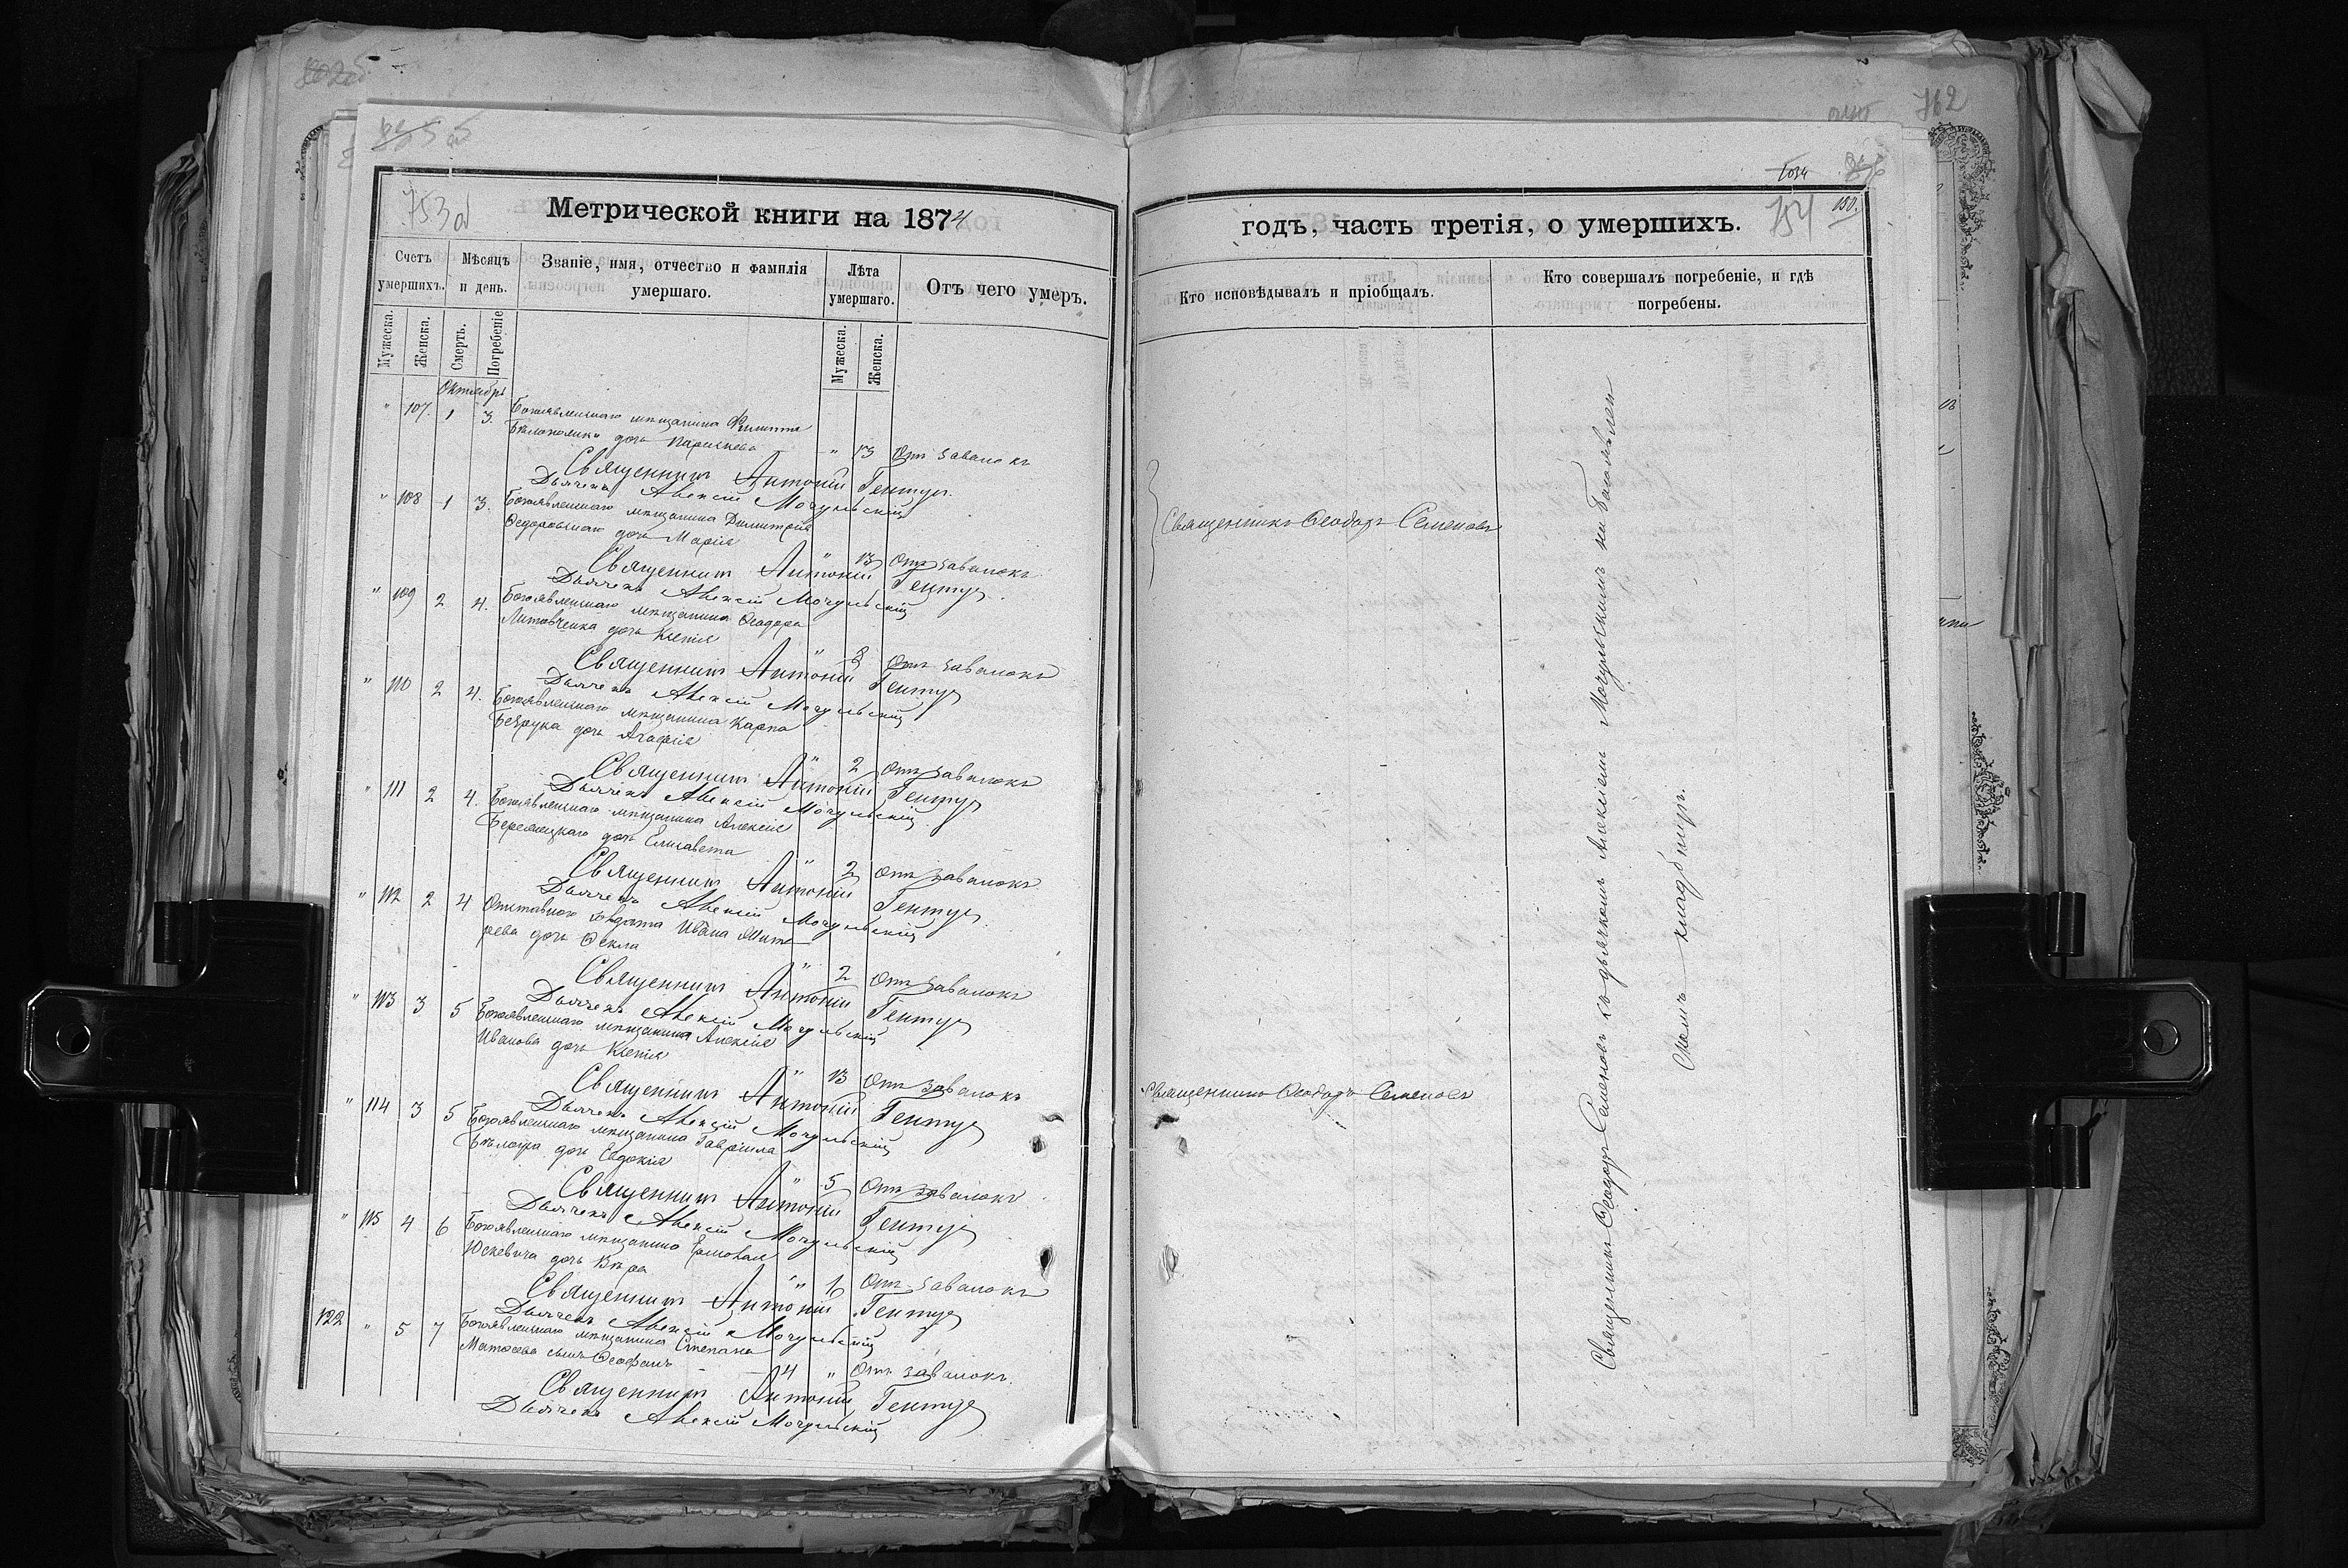 753об
Метрической книги на 1874
Счетъ умершихъ.
Мѣсяцъ и день.
Званіе, имя, отчество и фамилія умершаго.
Лѣта умершаго.
Отъ чего умеръ.
Мужеска.
Женска.
Смерть.
Погребеніе
Мужеска.
Женска.
Октябрь
" 107. 1 3. Богоявленскаго мѣщанина Филиппа
дочь Параскева " 13 Отъ завалокъ
Священникъ Антоній Гентуг
Дьячекъ Алексій Могульскій
" 108 1 3. Богоявленскаго мѣщанина Димитрія
дочь Марія " 13 Отъ завалокъ
Священникъ Антоній Гентуг
Дьячекъ Алексій Могульскій
" 109 2 4. Богоявленскаго мѣщанина Ѳеодора
Литовченка дочь Ксенія " 8 Отъ завалокъ
Священникъ Антоній Гентуг
Дьячекъ Алексій Могульскій
" 110 2 4. Богоявленскаго мѣщанина Карпа
Безрука дочь Агафія " 2 Отъ завалокъ
Священникъ Антоній Гентуг
Дьячекъ Алексій Могульскій
" 111 2 4. Богоявленскаго мѣщанина Алексія
дочь Елисавета " 2 Отъ завалокъ
Священникъ Антоній Гентуг
Дьячекъ Алексій Могульскій
" 112 2 4 Отставнаго солдата Ивана
дочь Ѳекла " 2 Отъ завалокъ
Священникъ Антоній Гентуг
Дьячекъ Алексій Могульскій
" 113 3 5 Богоявленскаго мѣщанина Алексія
Иванова дочь Ксенія " 13 Отъ завалокъ
Священникъ Антоній Гентуг
Дьячекъ Алексій Могульскій
" 114 3 5 Богоявленскаго мѣщанина Гавріила
дочь Евдокія " 5 Отъ завалокъ
Священникъ Антоній Гентуг
Дьячекъ Алексій Могульскій
" 115 4 6 Богоявленскаго мѣщанина
Юскевича дочь Вѣра " 1 Отъ завалокъ
Священникъ Антоній Гентуг
Дьячекъ Алексій Могульскій
122 " 5 7 Богоявленскаго мѣщанина Степана
сынъ Ѳеофанъ 4 " Отъ завалокъ.
Священникъ Антоній Гентуг
Дьячекъ Алексій Могульскій
762
1034
годъ, часть третія, о умершихъ.
754
150.
Кто исповѣдывалъ и пріобщалъ.
Кто совершалъ погребеніе, и гдѣ погребены.
Священникъ Ѳеодоръ Семеновъ
Священникъ Ѳеодоръ Семеновъ
Священникъ Ѳеодоръ Семеновъ съ дьячкомъ Алексіемъ Могульскимъ на Богоявлен
скомъ кладбищѣ.